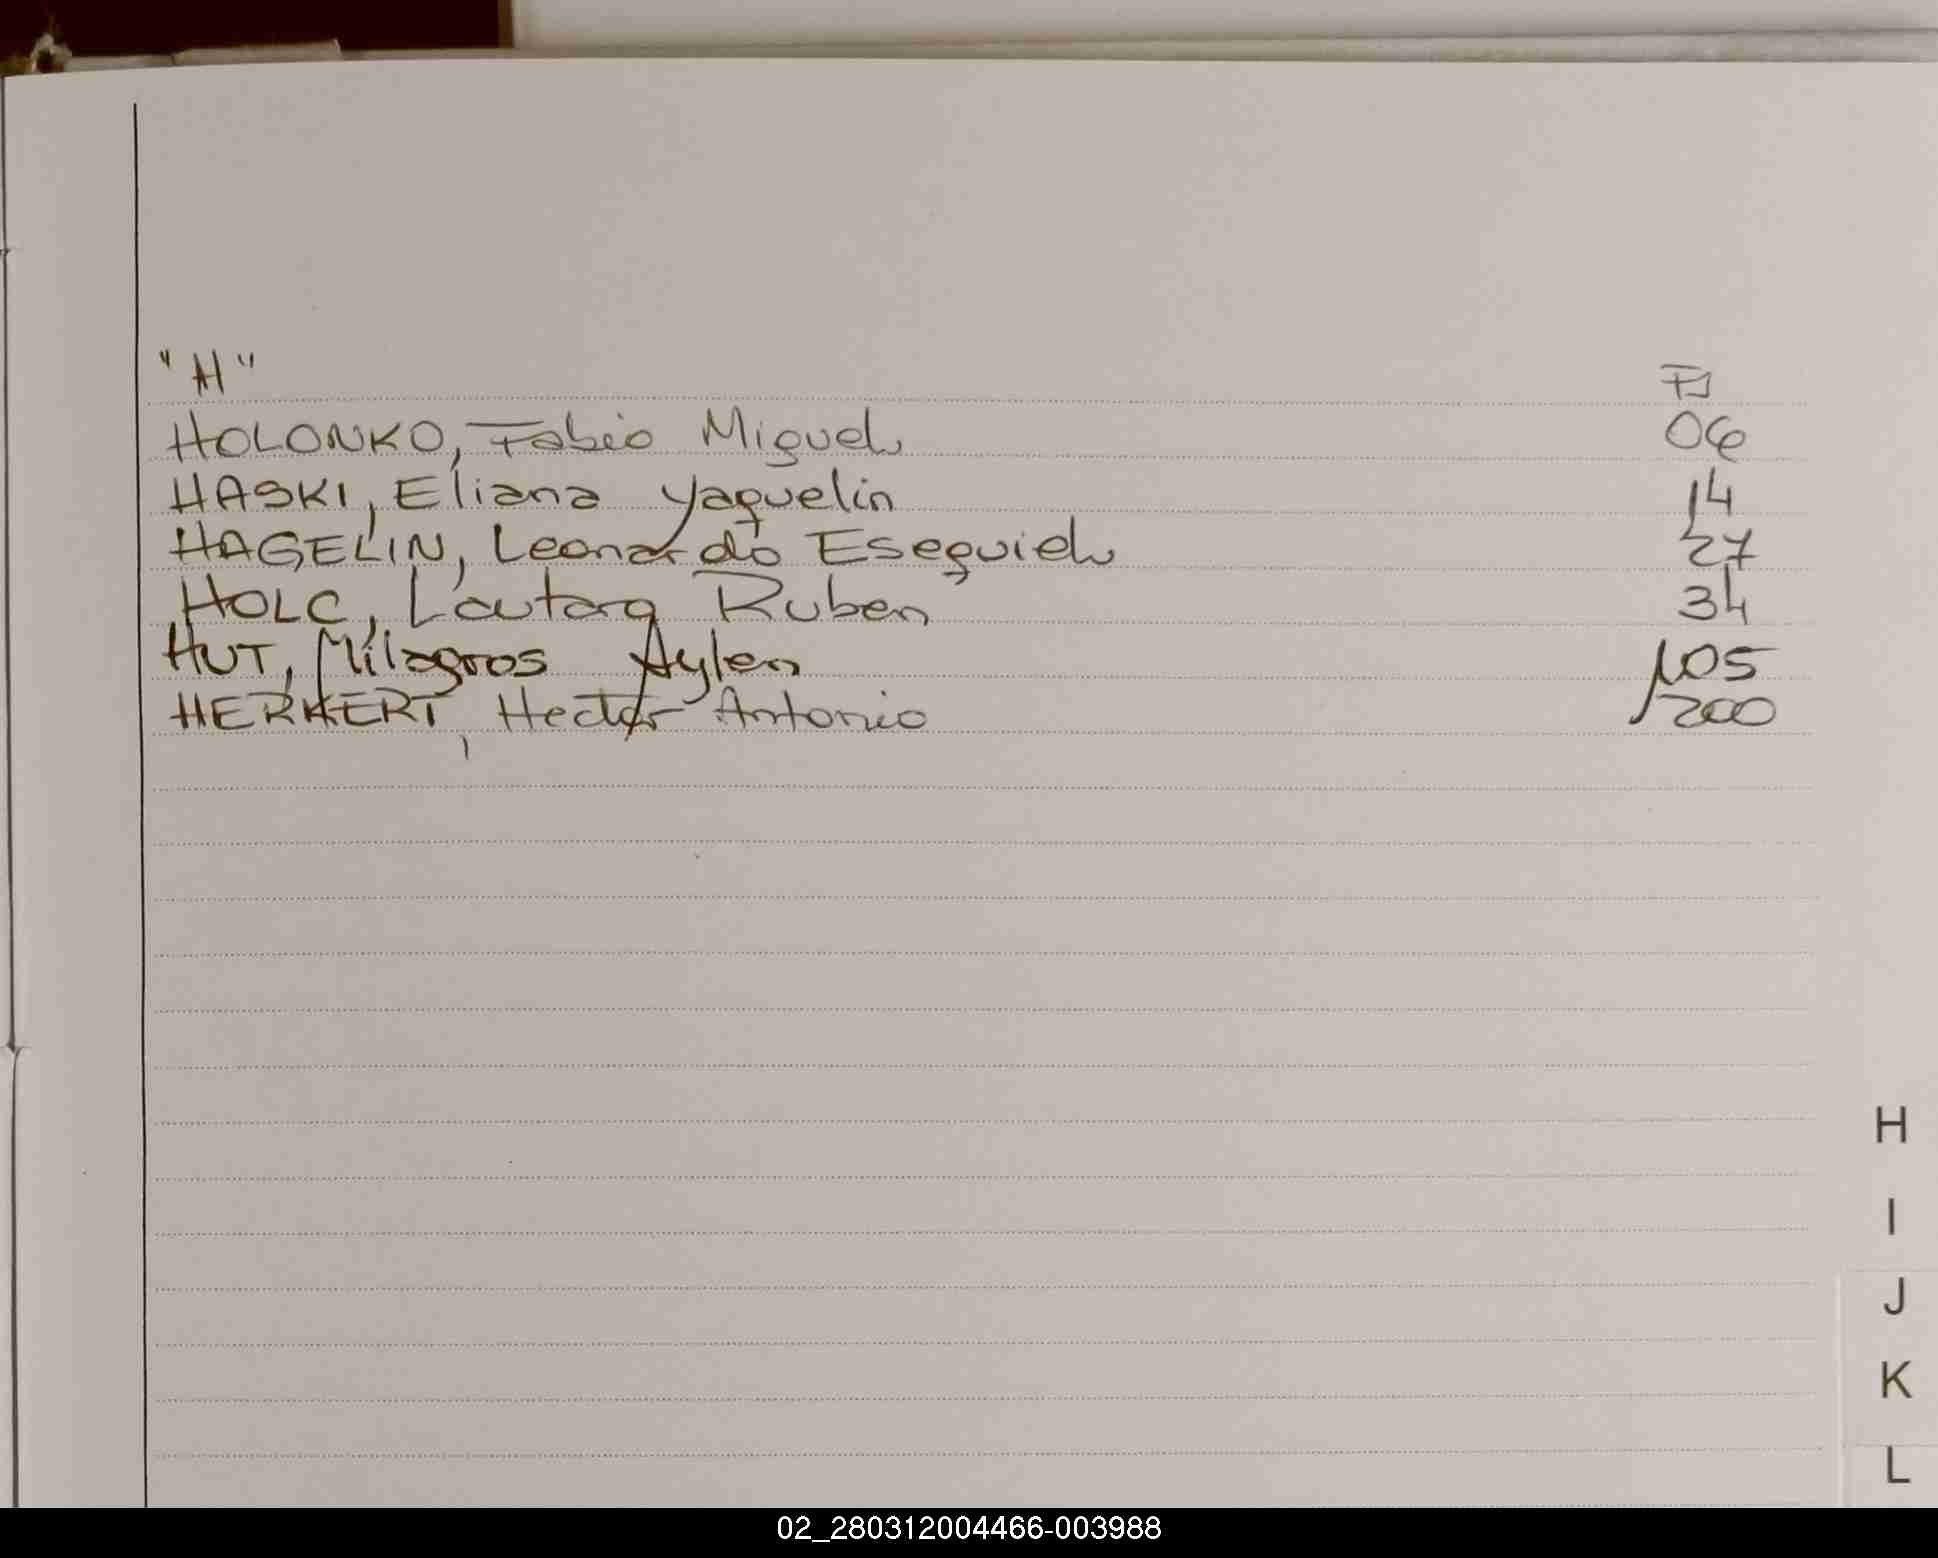 "H" FJ
HOLONKO, Fabio Miguel 06
HASKI, Eliana Yaquelin 14
HAGELIN, Leonardo Esequiel 27
HOLC, Lautaro Ruben 34
HUT, Milagros Aylen 105
HERKERT, Hector Antonio 200
H
I
J
K
L
02_280312004466-003988